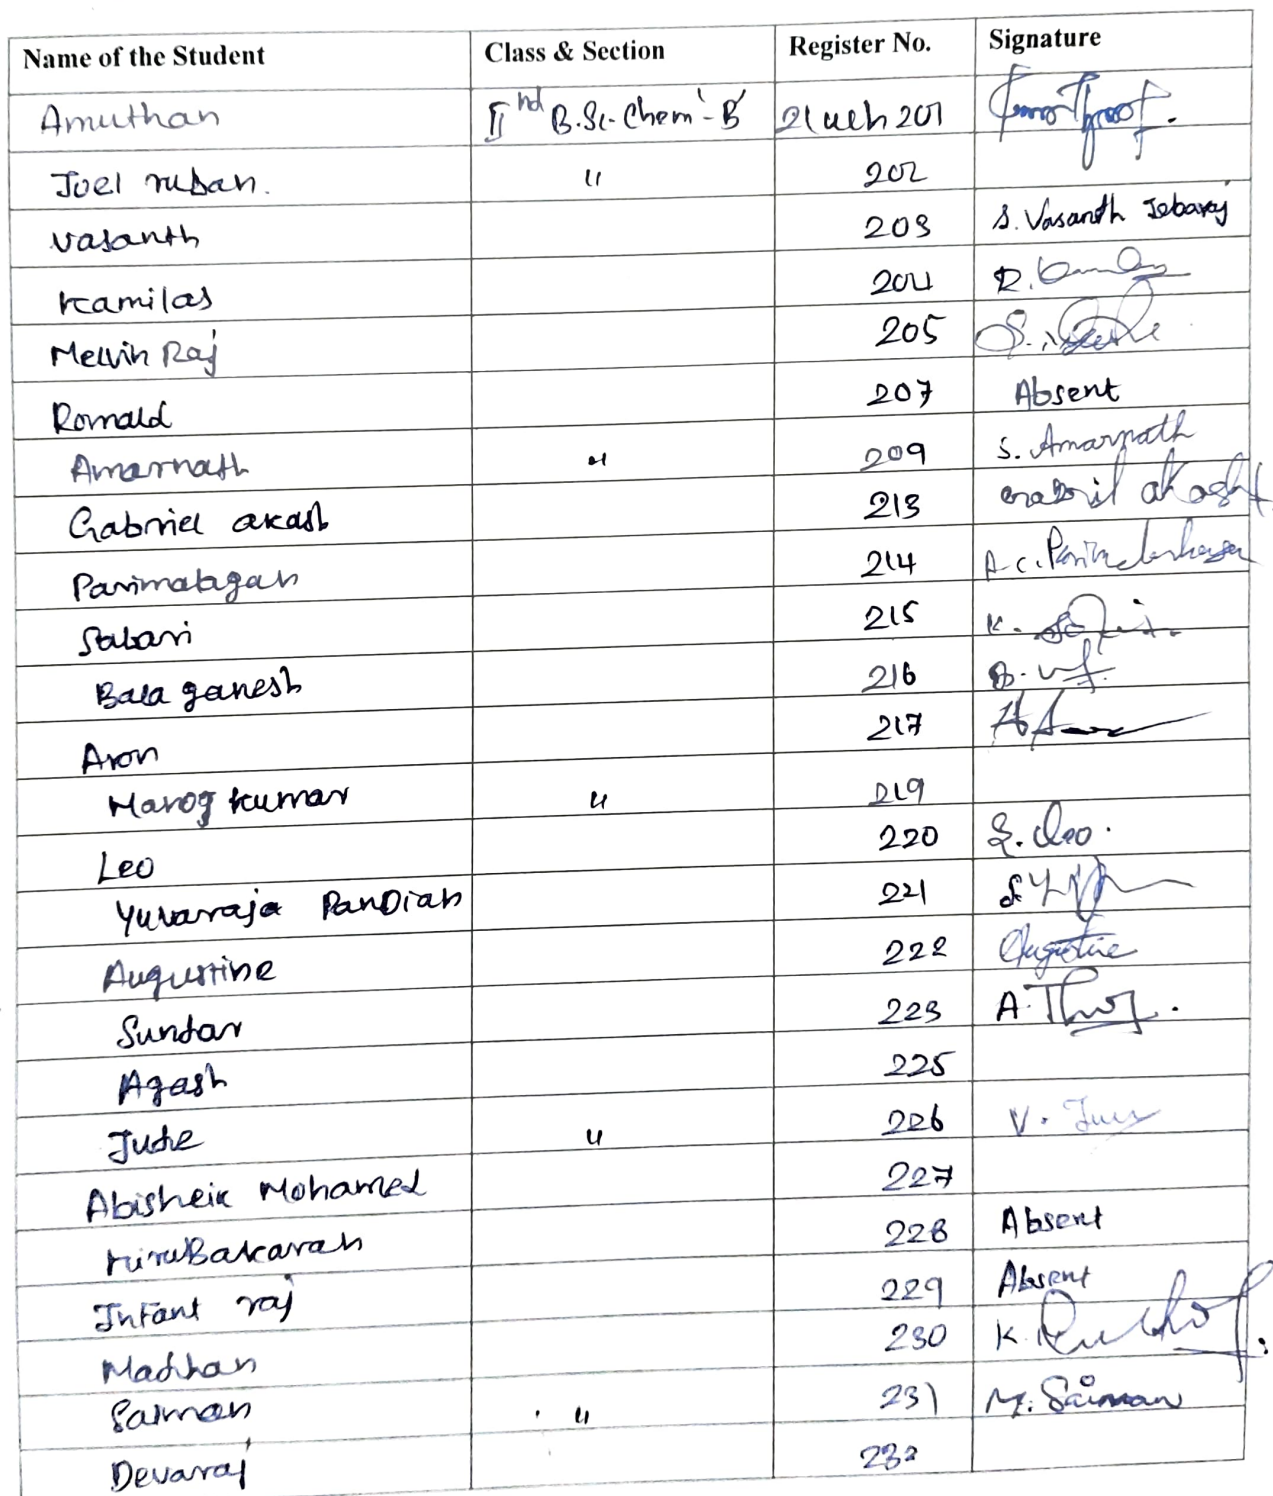 Name of the Student Class & Section Register No. Signature
Amuthan IInd B.Sc. Chem 'B' 21uch201
Joel ruban. " 202
Vasanth 203 S. Vasanth Jebaraj
Kamilas 204
Melvin Raj 205
Romald 207 Absent
Amarnath " 209 S. Amarnath
Gabriel akash 213 Gabril akash
Parimalagan 214 A.C. Parimelazhagan
Sabari 215
Bala ganesh 216
Aron 217
Manog kumar " 219
Leo 220 S. Leo.
Yuvaraja PanDian 221
Augustine 222 Augustine
Sundar 223
Agash 225
Jude " 226
Abisheik Mohamed 227
kiruBakaran 228 Absent
Infant raj 229 Absent
Madhan 230
Saiman " 231 M. Saiman
Devaraj 232